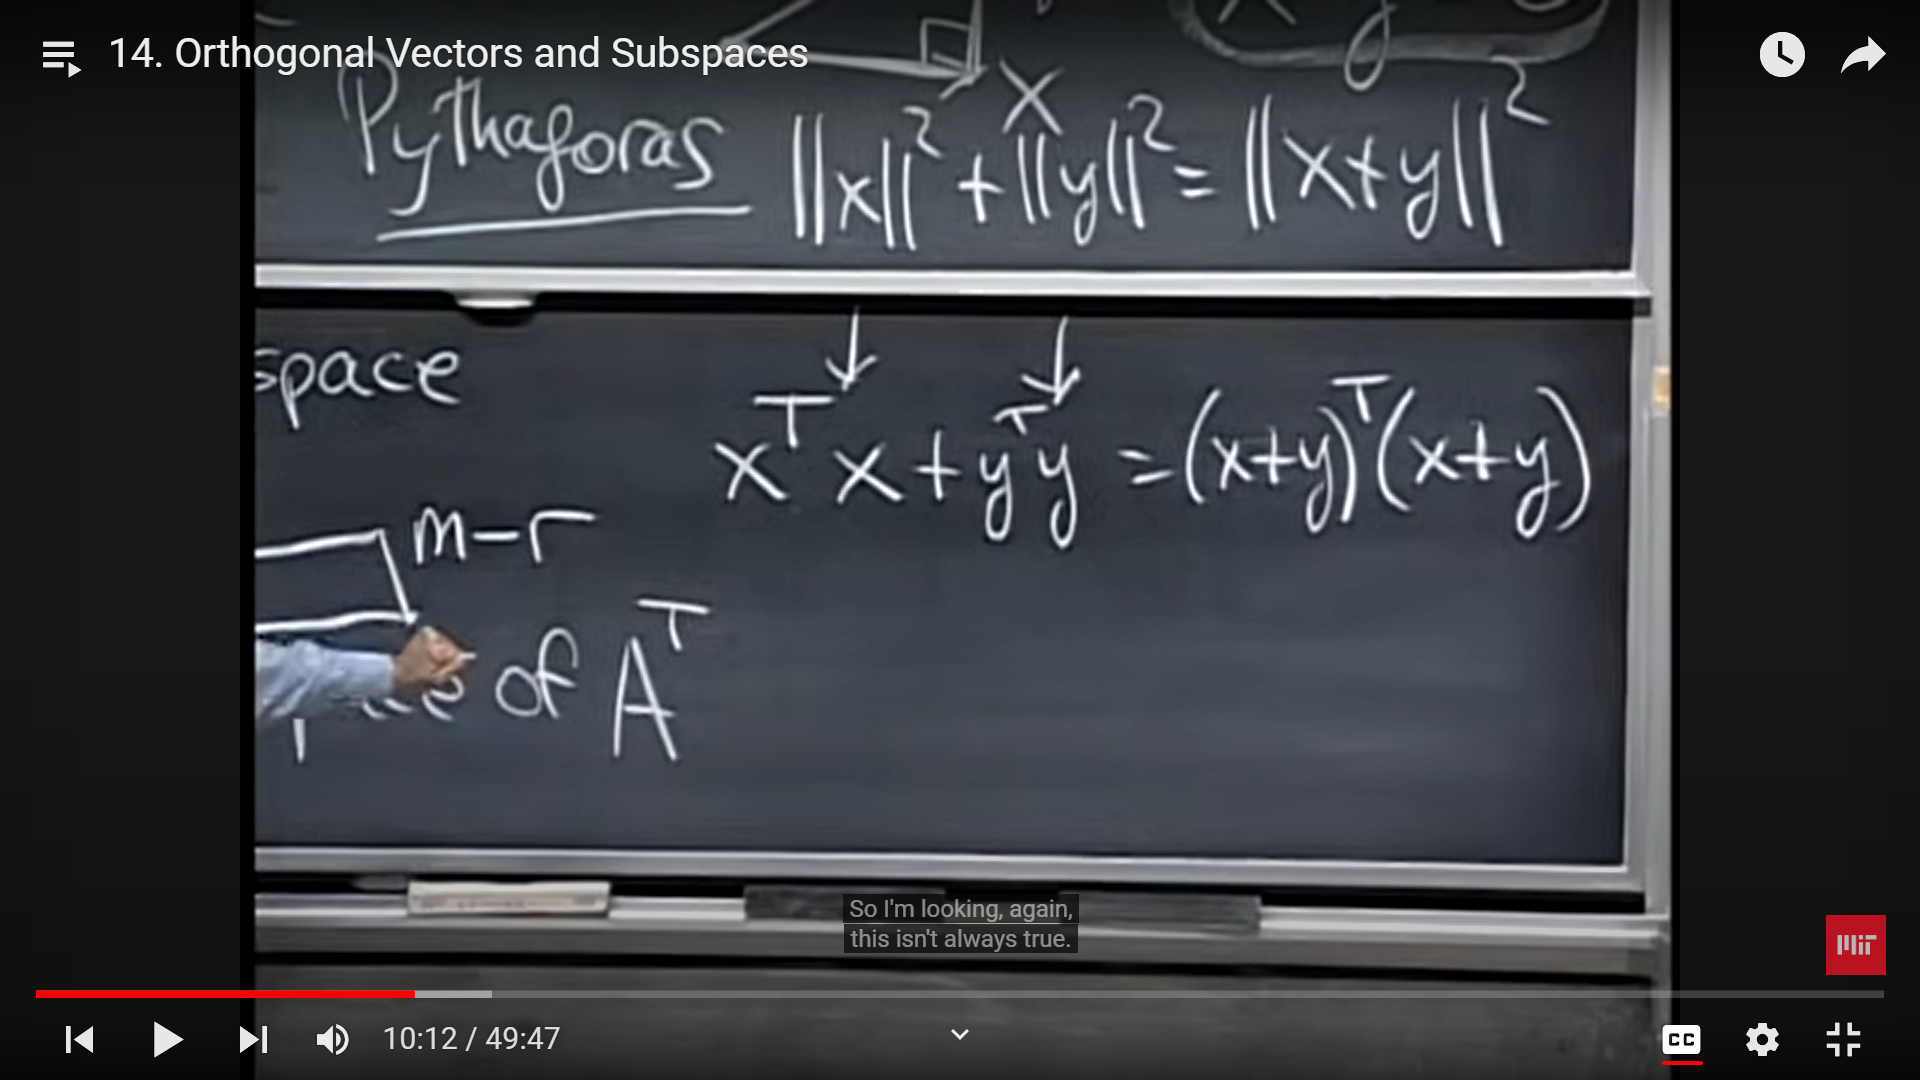 14. Orthogonal Vectors and Subspaces
x
Pythagoras ||x||² + ||y||² = ||x+y||²
space
xᵀx + yᵀy = (x+y)ᵀ(x+y)
m-r
of Aᵀ
So I'm looking, again,
this isn't always true.
MIT
10:12 / 49:47
CC